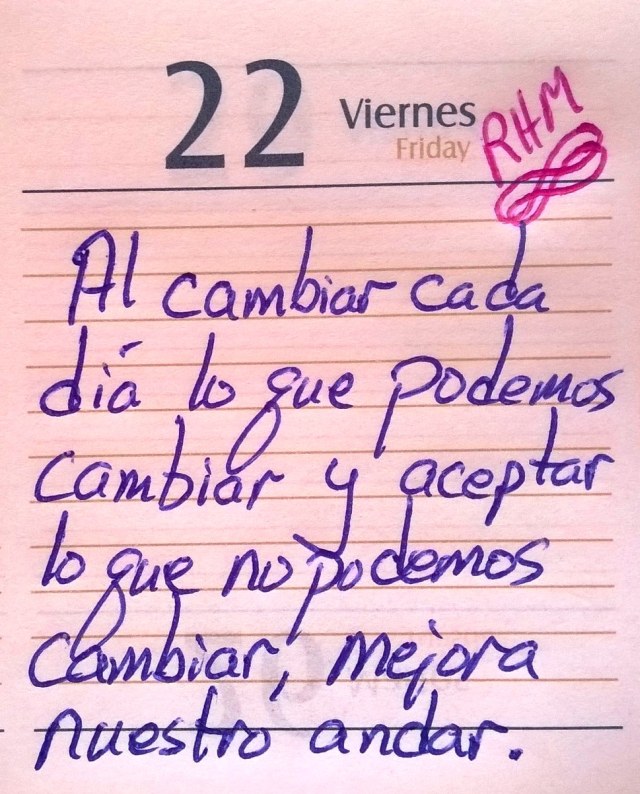 22 Viernes
Friday
RHM
Al cambiar cada
día lo que podemos
cambiar y aceptar
lo que no podemos
cambiar, mejora
nuestro andar.